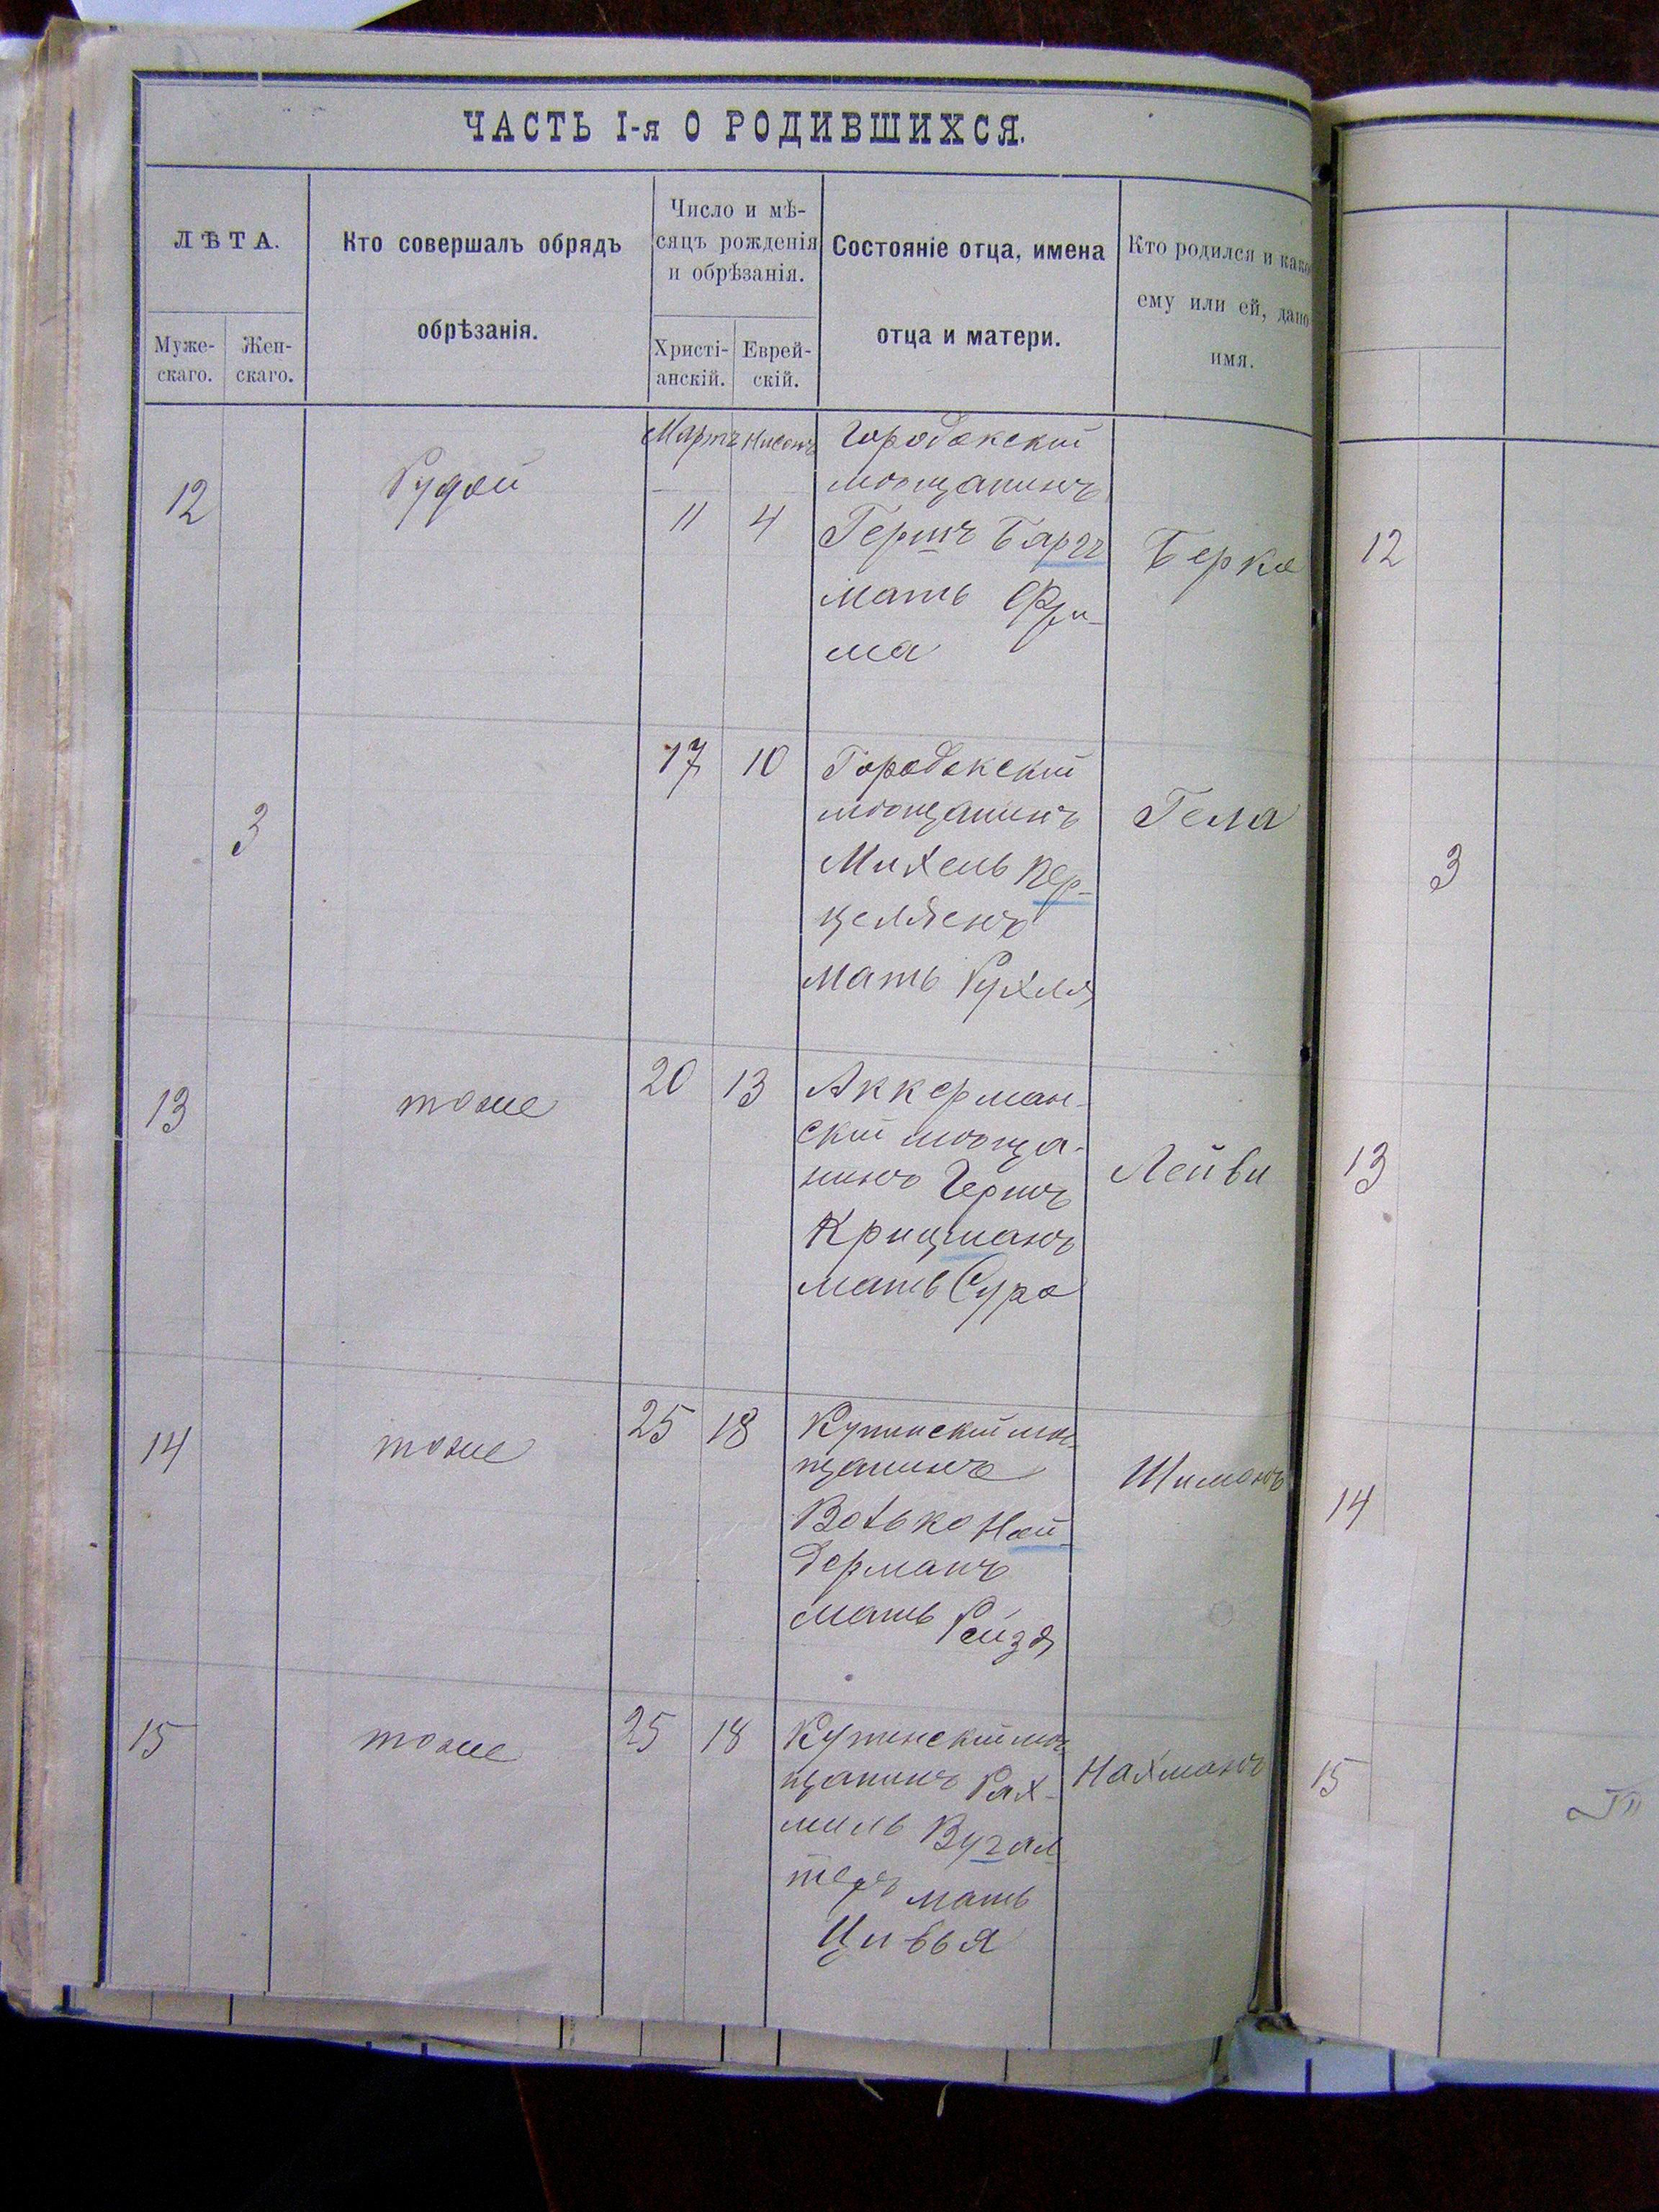 ЧАСТЬ I-я О РОДИВШИХСЯ.
ЛѢТА.
Муже-
скаго.
Жен-
скаго.
Кто совершалъ обрядъ
обрѣзанія.
Число и мѣ-
сяцъ рожденія
и обрѣзанія.
Христі-
анскій.
Еврей-
скій.
Состояніе отца, имена
отца и матери.
Кто родился и како
ему или ей, дано
имя.
12
Рудой
Мартъ Нисонъ
11 4
Городокский
мѣщанинъ
Гершъ Баргъ
мать Фры-
ма
Берко
12
3
17 10
Городокский
мѣщанинъ
Михель Кер-
целменъ
мать Рухля
Гела
3
13
тоже
20 13
Аккерман-
ский мѣща-
нинъ Гершъ
Крицманъ
мать Сура
Лейви
13
14
тоже
25 18
Купинский мѣ-
щанинъ
Волько Ней-
дерманъ
мать Рейзя
Шимонъ
14
15
тоже
25 18
Купинский мѣ-
щанинъ Рах-
миль Бугал-
теръ мать
Цивья
Нахманъ
15